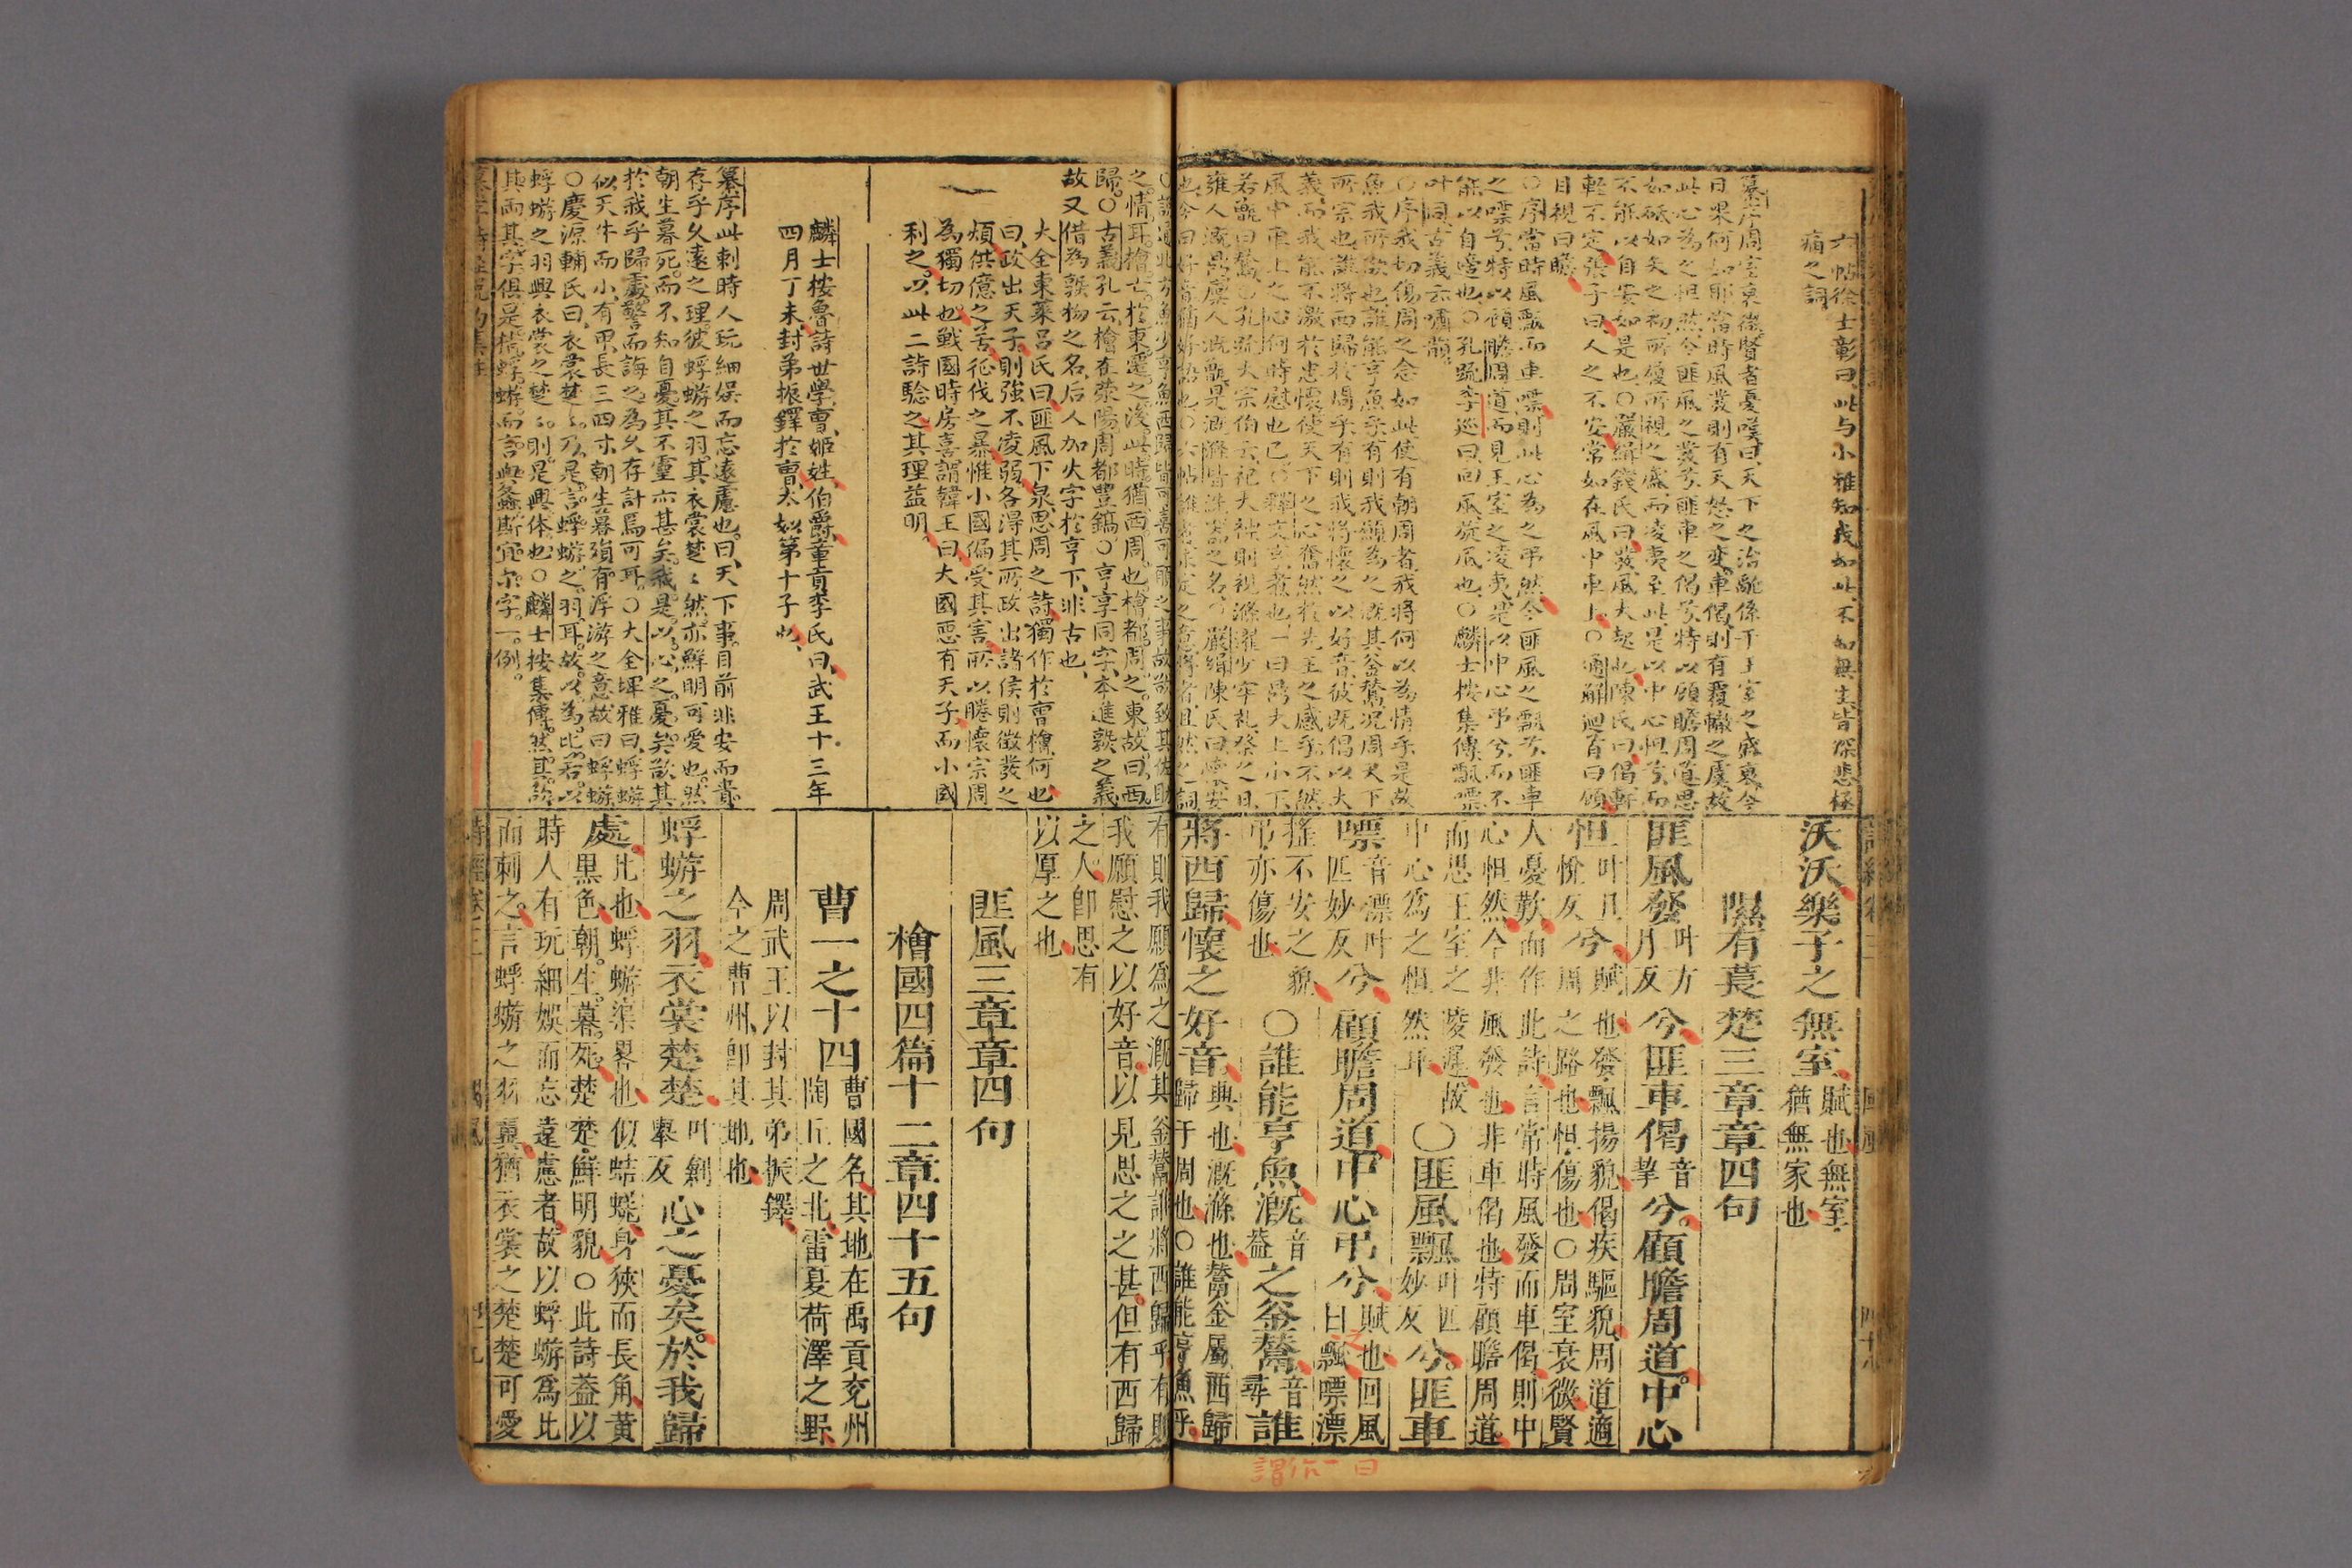 六帖徐士彰曰此与小雅知我如此不如無生皆深悲極
痛之詞
纂序周室衰微賢者憂嘆曰天下之治亂係于王室之盛衰今
日果何如耶當時風發則有天怒之變車偈則有覆轍之虞故
此心為之怛然今匪風之發兮匪車之偈兮特以顧瞻周道思
如砥如矢之初所履所視之盛而凌夷至此是以中心怛兮而
不能以自安如是也〇嚴緝錢氏曰發風大起也陳氏曰偈軒
輊不定張子曰人之不安常如在風中車上〇通解迴首曰顧
目視曰瞻
〇序當時風飄而車嘌則此心為之弔然今匪風之飄兮匪車
之嘌兮特以顧瞻周道而見王室之凌夷是以中心弔兮而不
能以自寧也〇孔疏李巡曰回風旋風也〇麟士按集傳飄嘌
叶同古義云嘯韻
〇序我切傷周之念如此使有朝周者我將何以為情乎是故
魚我所欲也誰能亨魚乎有則我願為之溉其釜鬵况周天下
所宗也誰將西歸於周乎有則我將懷之以好音彼既倡以大
義而我能不激於忠懷使天下之心奮然於先王之感乎不然
風中車上之心何時慰也已〇釋文亨煮也一曰鬵大上小下
歸〇古義孔云檜在滎陽周都豐鎬〇亨享同字本進㷅之義
故又借為㷅物之名后人加火字於亨下非古也
大全東萊呂氏曰匪風下泉思周之詩獨作於曹檜何也
曰政出天子則強不凌弱各得其所政出諸侯則徵發之
煩供億之苦征伐之暴惟小國偏受其害所以睠懷宗周
為獨切也戰國時房喜謂韓王曰大國惡有天子而小國
利之以此二詩驗之其理益明
麟士按魯詩世學曹姬姓伯爵童貢李氏曰武王十三年
四月丁未封弟振鐸於曹太姒第十子也
纂序此刺時人玩細娛而忘遠慮也曰天下事目前非安而貴
存乎久遠之理彼蜉蝣之羽其衣裳楚〻然亦鮮明可愛也然
朝生暮死而不知自憂其不靈亦甚矣我是以心之憂矣欲其
於我乎歸處警而誨之為久存計焉可耳〇大全埤雅曰蜉蝣
似天牛而小有甲長三四寸朝生暮殞有浮游之意故曰蜉蝣
〇慶源輔氏曰衣裳楚〻乃是言蜉蝣之羽耳故以為比若以
蜉蝣之羽興衣裳之楚〻則是興体也〇麟士按集傳然其訟
其兩其字俱是指蜉蝣而言與螽斯宜尔字一例
沃沃樂子之無室賦也無室猶無家也
隰有萇楚三章章四句
匪風發叶方月反兮匪車偈音挈兮顧瞻周道中心
怛叶旦悅反兮賦也發飄揚貌偈疾驅貌周道適周之路也怛傷也〇周室衰微賢
人憂歎而作此詩言常時風發而車偈則中
心怛然今非風發也非車偈也特顧瞻周道
而思王室之陵遲故中心為之怛然耳〇匪風飄叶匹妙反兮匪車
嘌音漂叶匹妙反兮顧瞻周道中心弔兮賦也回風曰飄嘌漂
搖不安之貌弔亦傷也〇誰能亨魚溉音蓋之釜鬵音尋誰
將西歸懷之好音興也溉滌也鬵釜屬西歸歸于周也〇誰能亨魚乎
有則我願為之溉其釜鬵誰將西歸乎有則
我願慰之以好音以見思之之甚但有西歸
之人即思有
以厚之也
匪風三章章四句
檜國四篇十二章四十五句
曹一之十四曹國名其地在禹貢兗州陶丘之北雷夏荷澤之野
周武王以封其弟振鐸今之曹州即其地也
蜉蝣之羽衣裳楚楚叶創舉反心之憂矣於我歸
處比也蜉蝣渠略也似蛣蜣身狹而長角黃黑色朝生暮死楚楚鮮明貌〇此詩蓋以
時人有玩細娛而忘遠慮者故以蜉蝣為比
而刺之言蜉蝣之羽翼猶衣裳之楚楚可愛